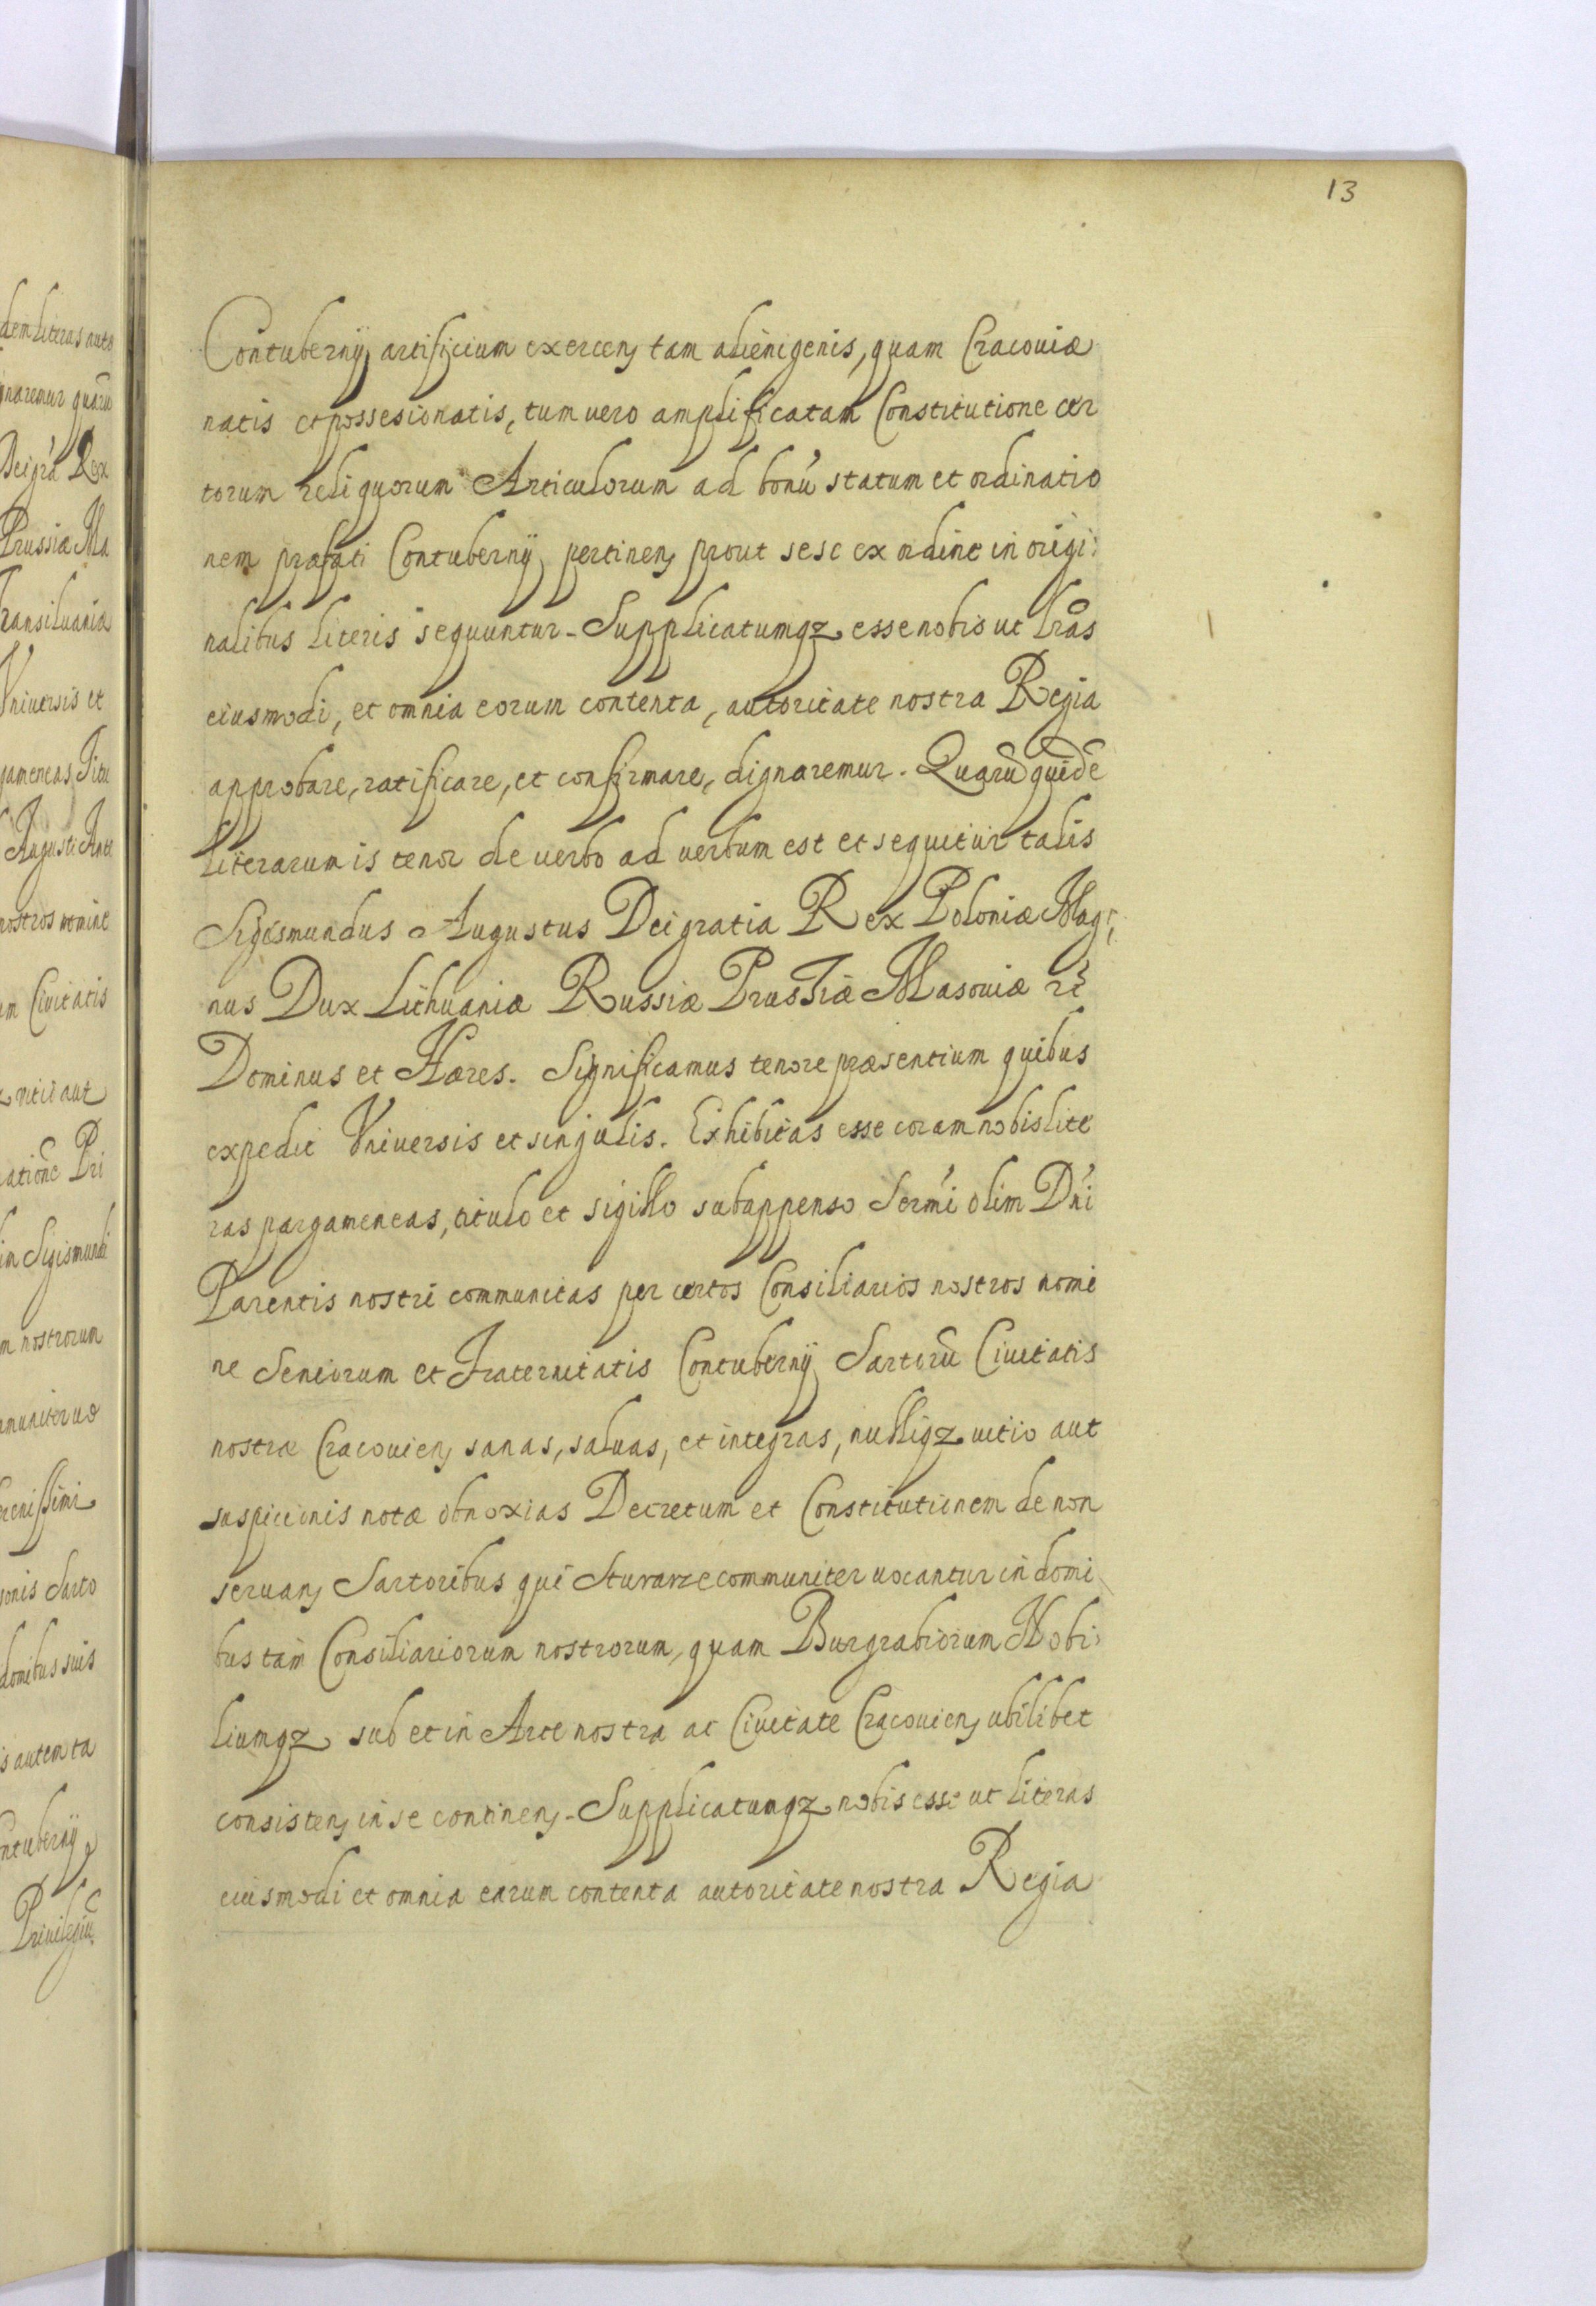 13
Contubernÿ artificium exercen tam alienigenis, quam Cracouiæ
natis et possesionatis, tum uero amplificatam Constitutione cer
torum reliquorum Articulorum ad bonũ statum et ordinatio
nem præfati Contubernÿ pertinen prout sese ex ordine in origi:
nalibus literis sequuntur. Supplicatumqz esse nobis ut lr̃as
eiusmodi, et omnia eorum contenta, autoritate nostra Regia
approbare, ratificare, et confirmare, dignaremur. Quarũ quidẽ
literarum is tenor de uerbo ad uerbum est et sequitur talis
Sigismundus Augustus Dei gratia Rex Poloniæ Mag:
nus Dux Lithuaniæ Russiæ Prussiæ Masouiæ ꝛc̃
Dominus et Hæres. Significamus tenore præsentium quibus
expedit Vniuersis et singulis. Exhibitas esse coram nobis lite
ras pargameneas, titulo et sigillo subappenso Serm̃i olim Dñi
Parentis nostri communitas per certos Consiliarios nostros nomi
ne Seniorum et Fraternitatis Contubernÿ Sartorũ Ciuitatis
nostræ Cracouien sanas, saluas, et integras, nulliqz uitio aut
suspicionis notæ obnoxias Decretum et Constitutionem de non
seruan Sartoribus qui Sturarze communiter uocantur in domi
bus tam Consiliariorum nostrorum, quam Burgrabiorum Nobi:
liumqz sub et in Arce nostra ac Ciuitate Cracouien ubilibet
consisten in se continen. Supplicatumqz nobis esse ut literas
eiusmodi et omnia earum contenta autoritate nostra Regia